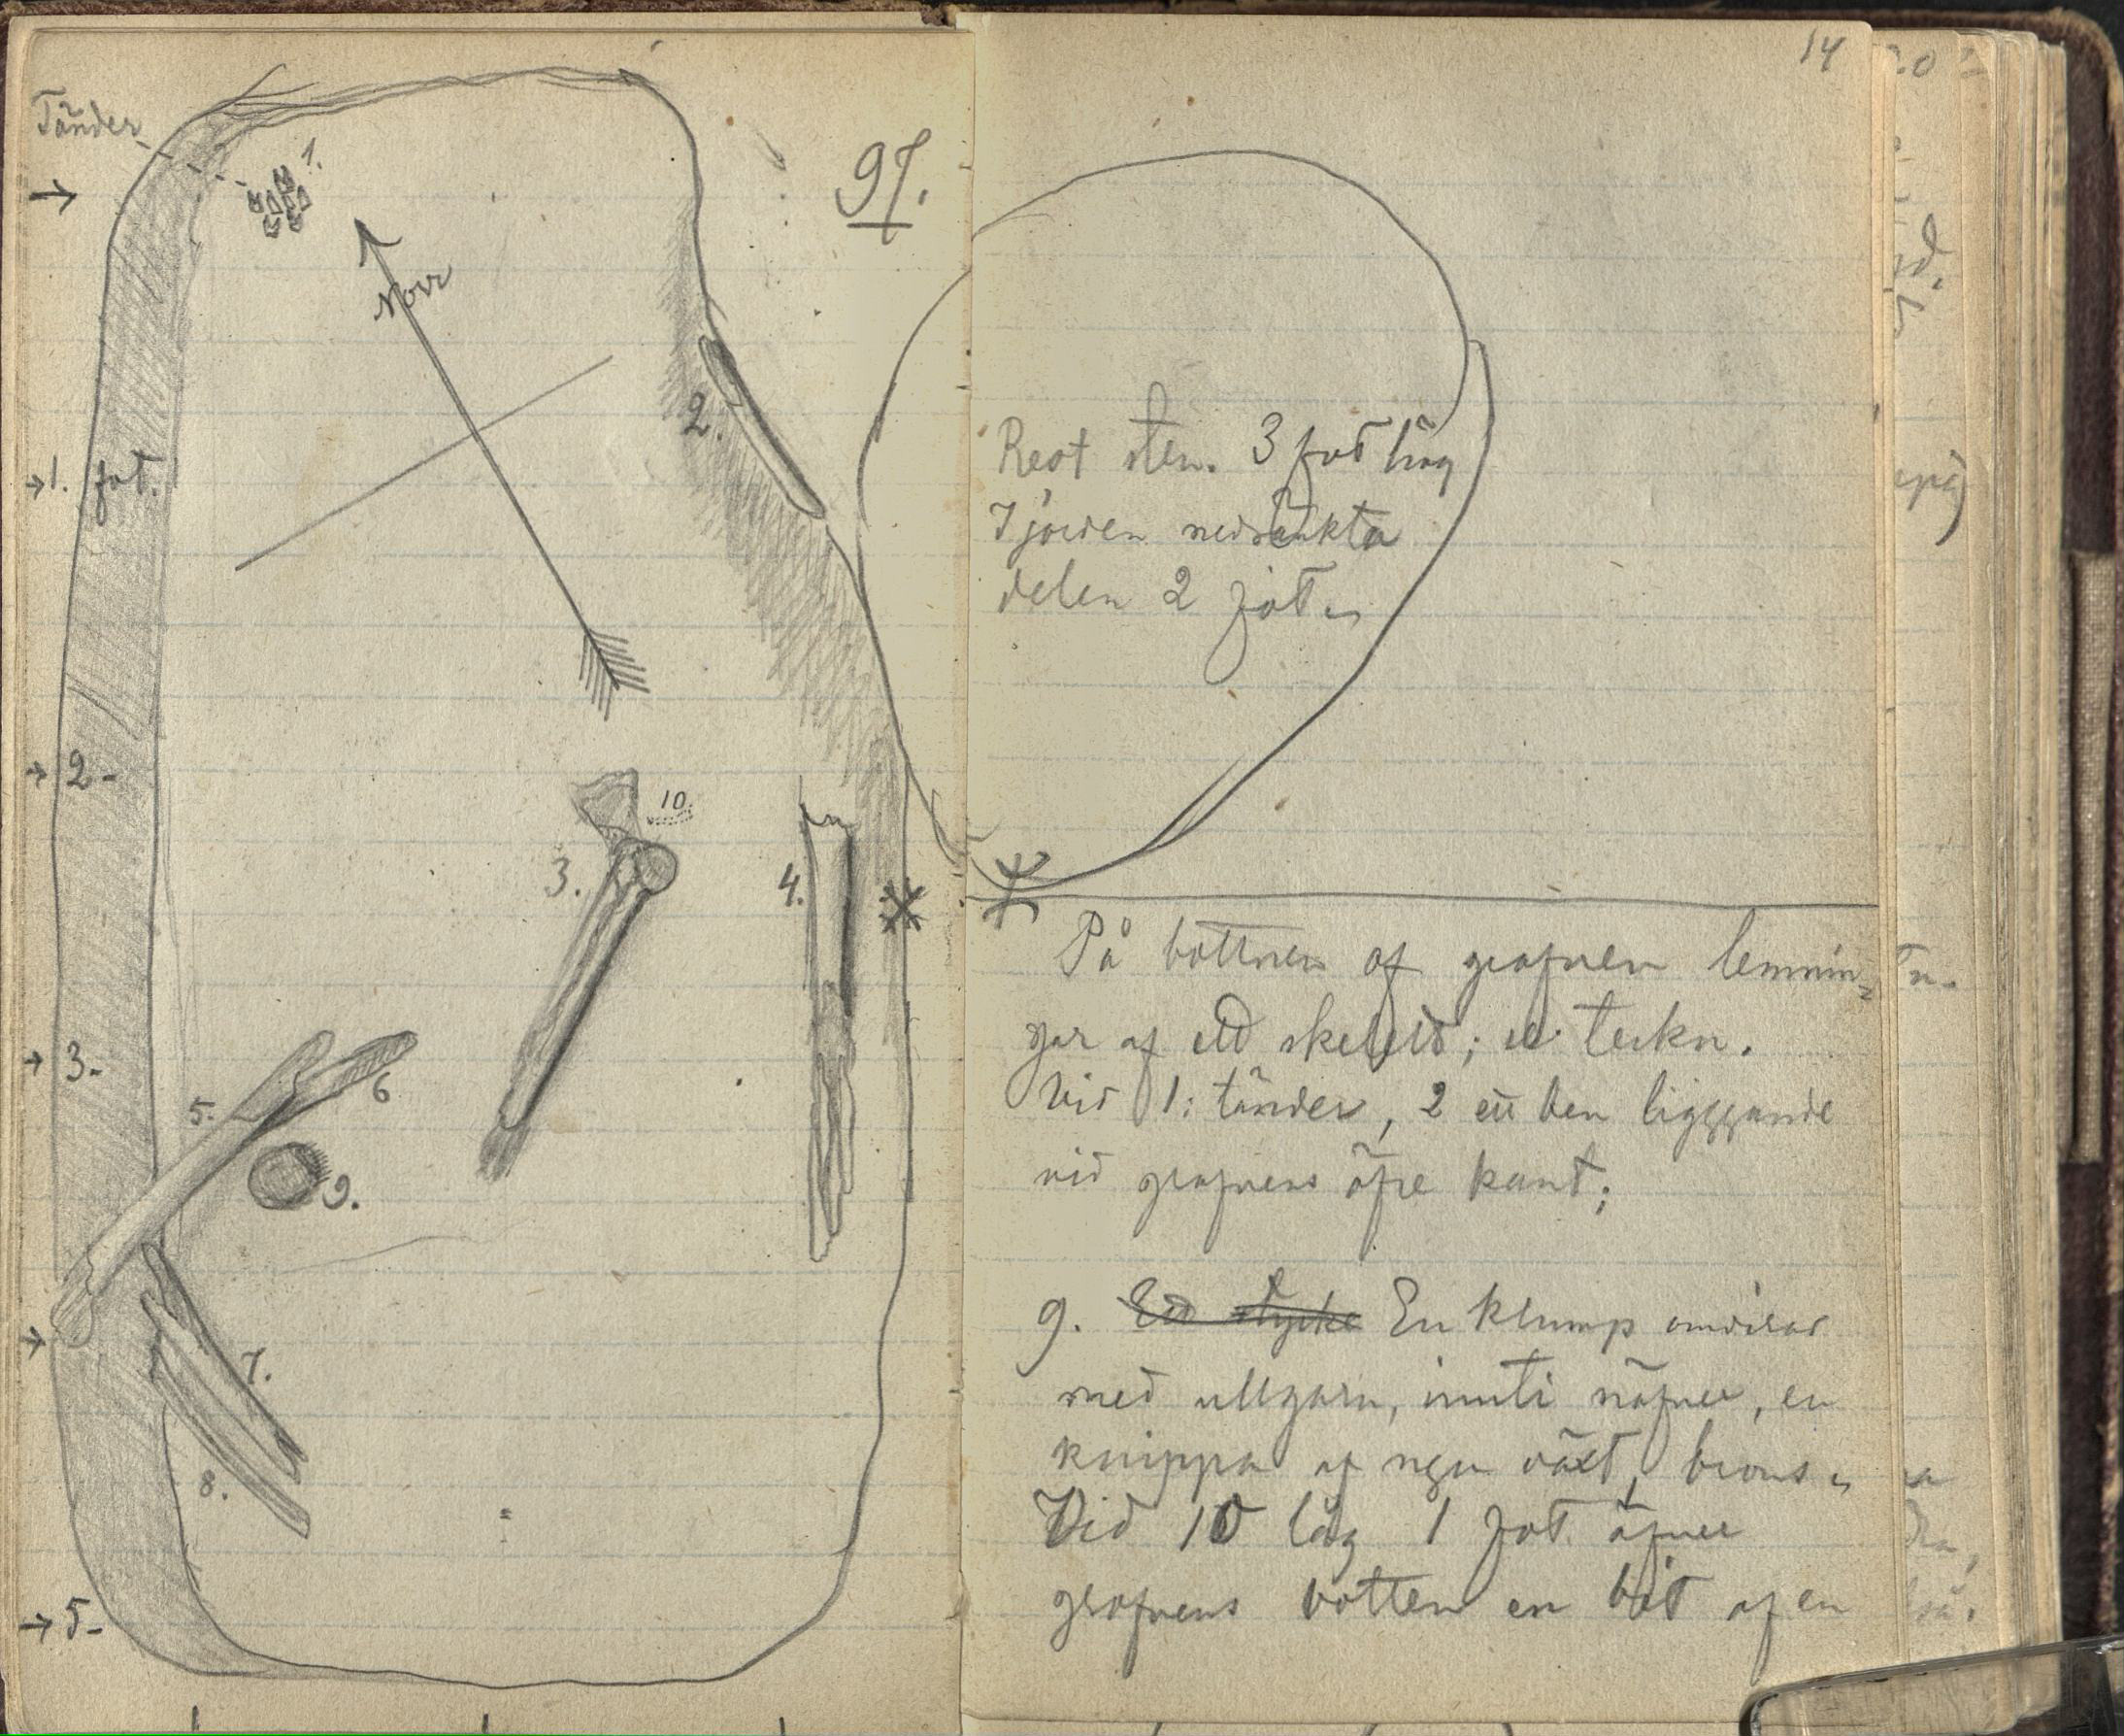 Tänder
1.
97.
Norr
2.
1. fot.
2-
10.
3.
4.
3-
5.
6
9.
7.
8.
5-
14
Rest sten. 3 fot hög
I jorden nedsänkta
delen 2 fot.
På bottnen af grafven lemnin=
gar af ett skelett; se teckn.
Vid 1: tänder, 2 ett ben liggande
vid grafvens öfre kant;
9. Ett stycke En klump omvirad
med ullgarn, inuti näfver, en
knippa af ngn växt, brons.
Vid 10 låg 1 fot öfver
grafvens botten en bit af en